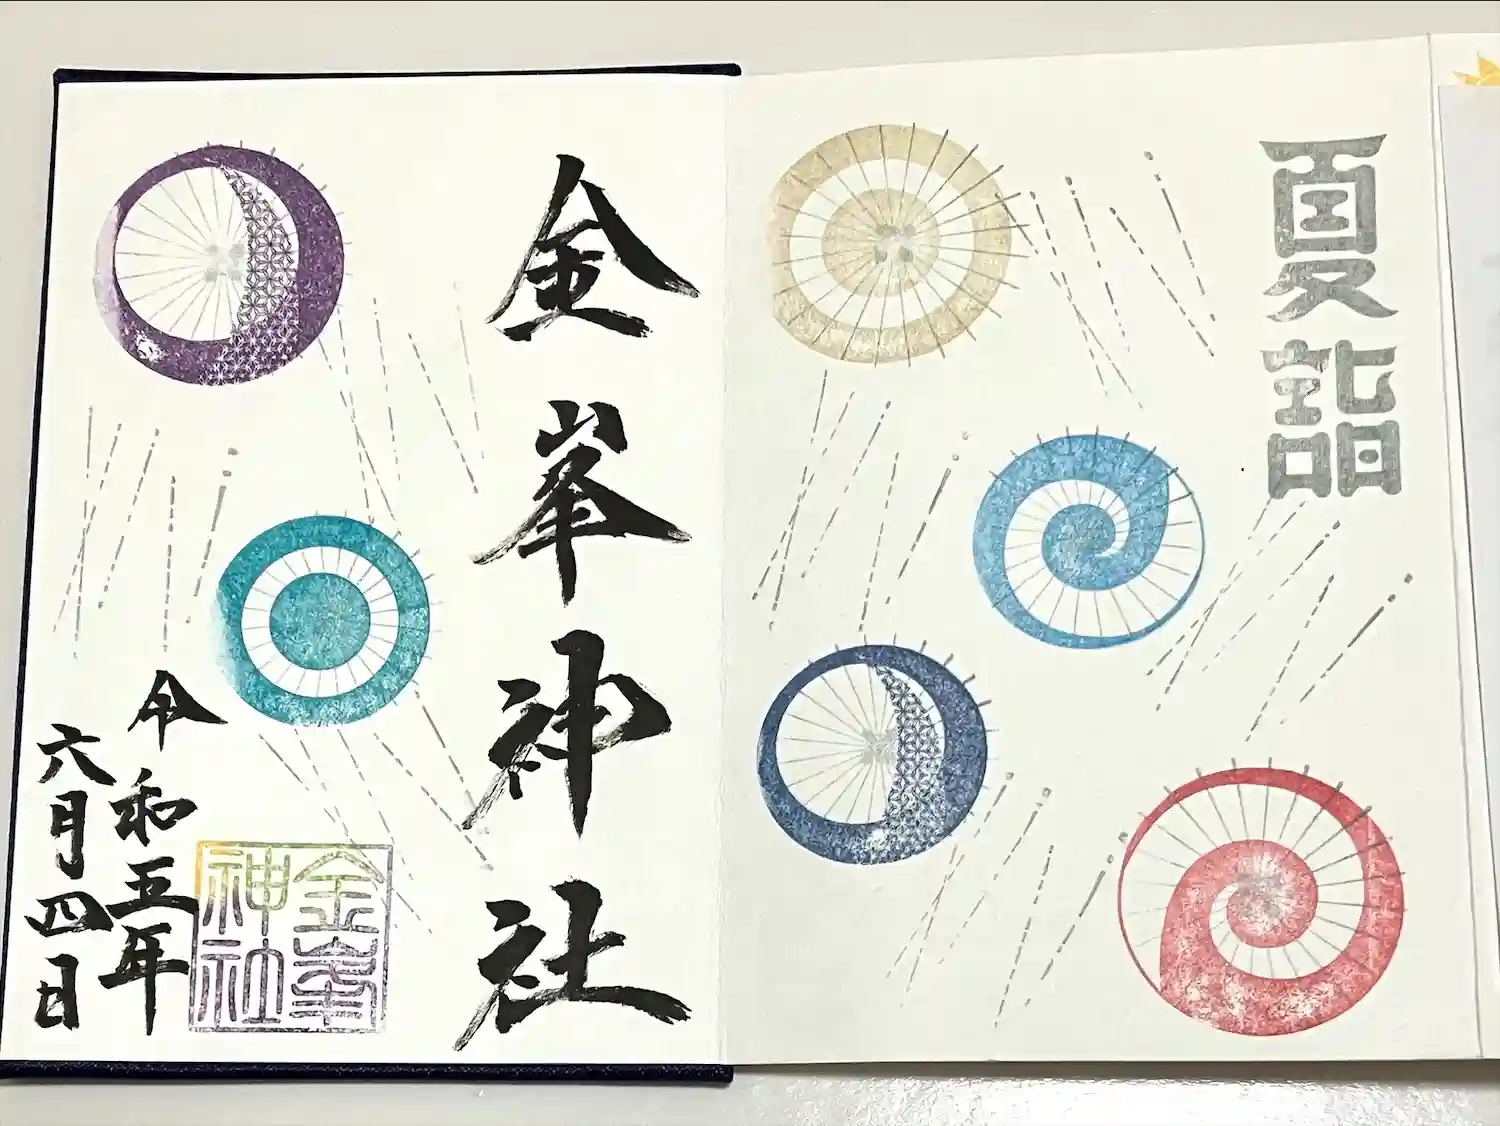 夏詣
金峯神社
令和五年
六月四日
金峯
神社